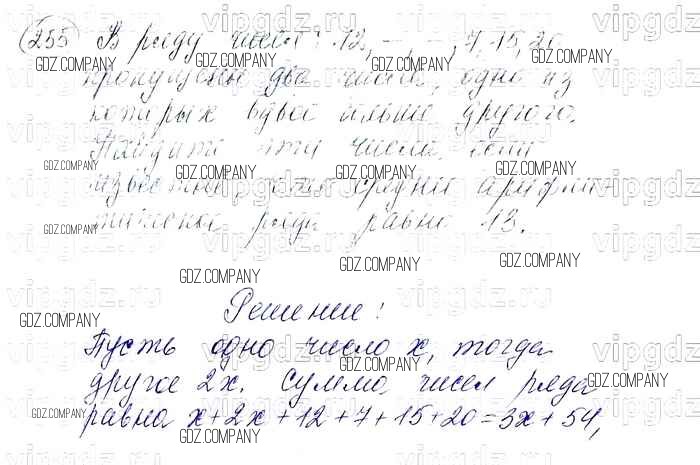 255 В ряду чисел: 12, –, –, 7, 15, 20
пропущены два числа, одно из
которых вдвое больше другого.
Найдите эти числа, если
известно, что среднее арифме-
тическое ряда равно 13.
Решение:
Пусть одно число x, тогда
другое 2x. Сумма чисел ряда
равна x+2x+12+7+15+20=3x+54,